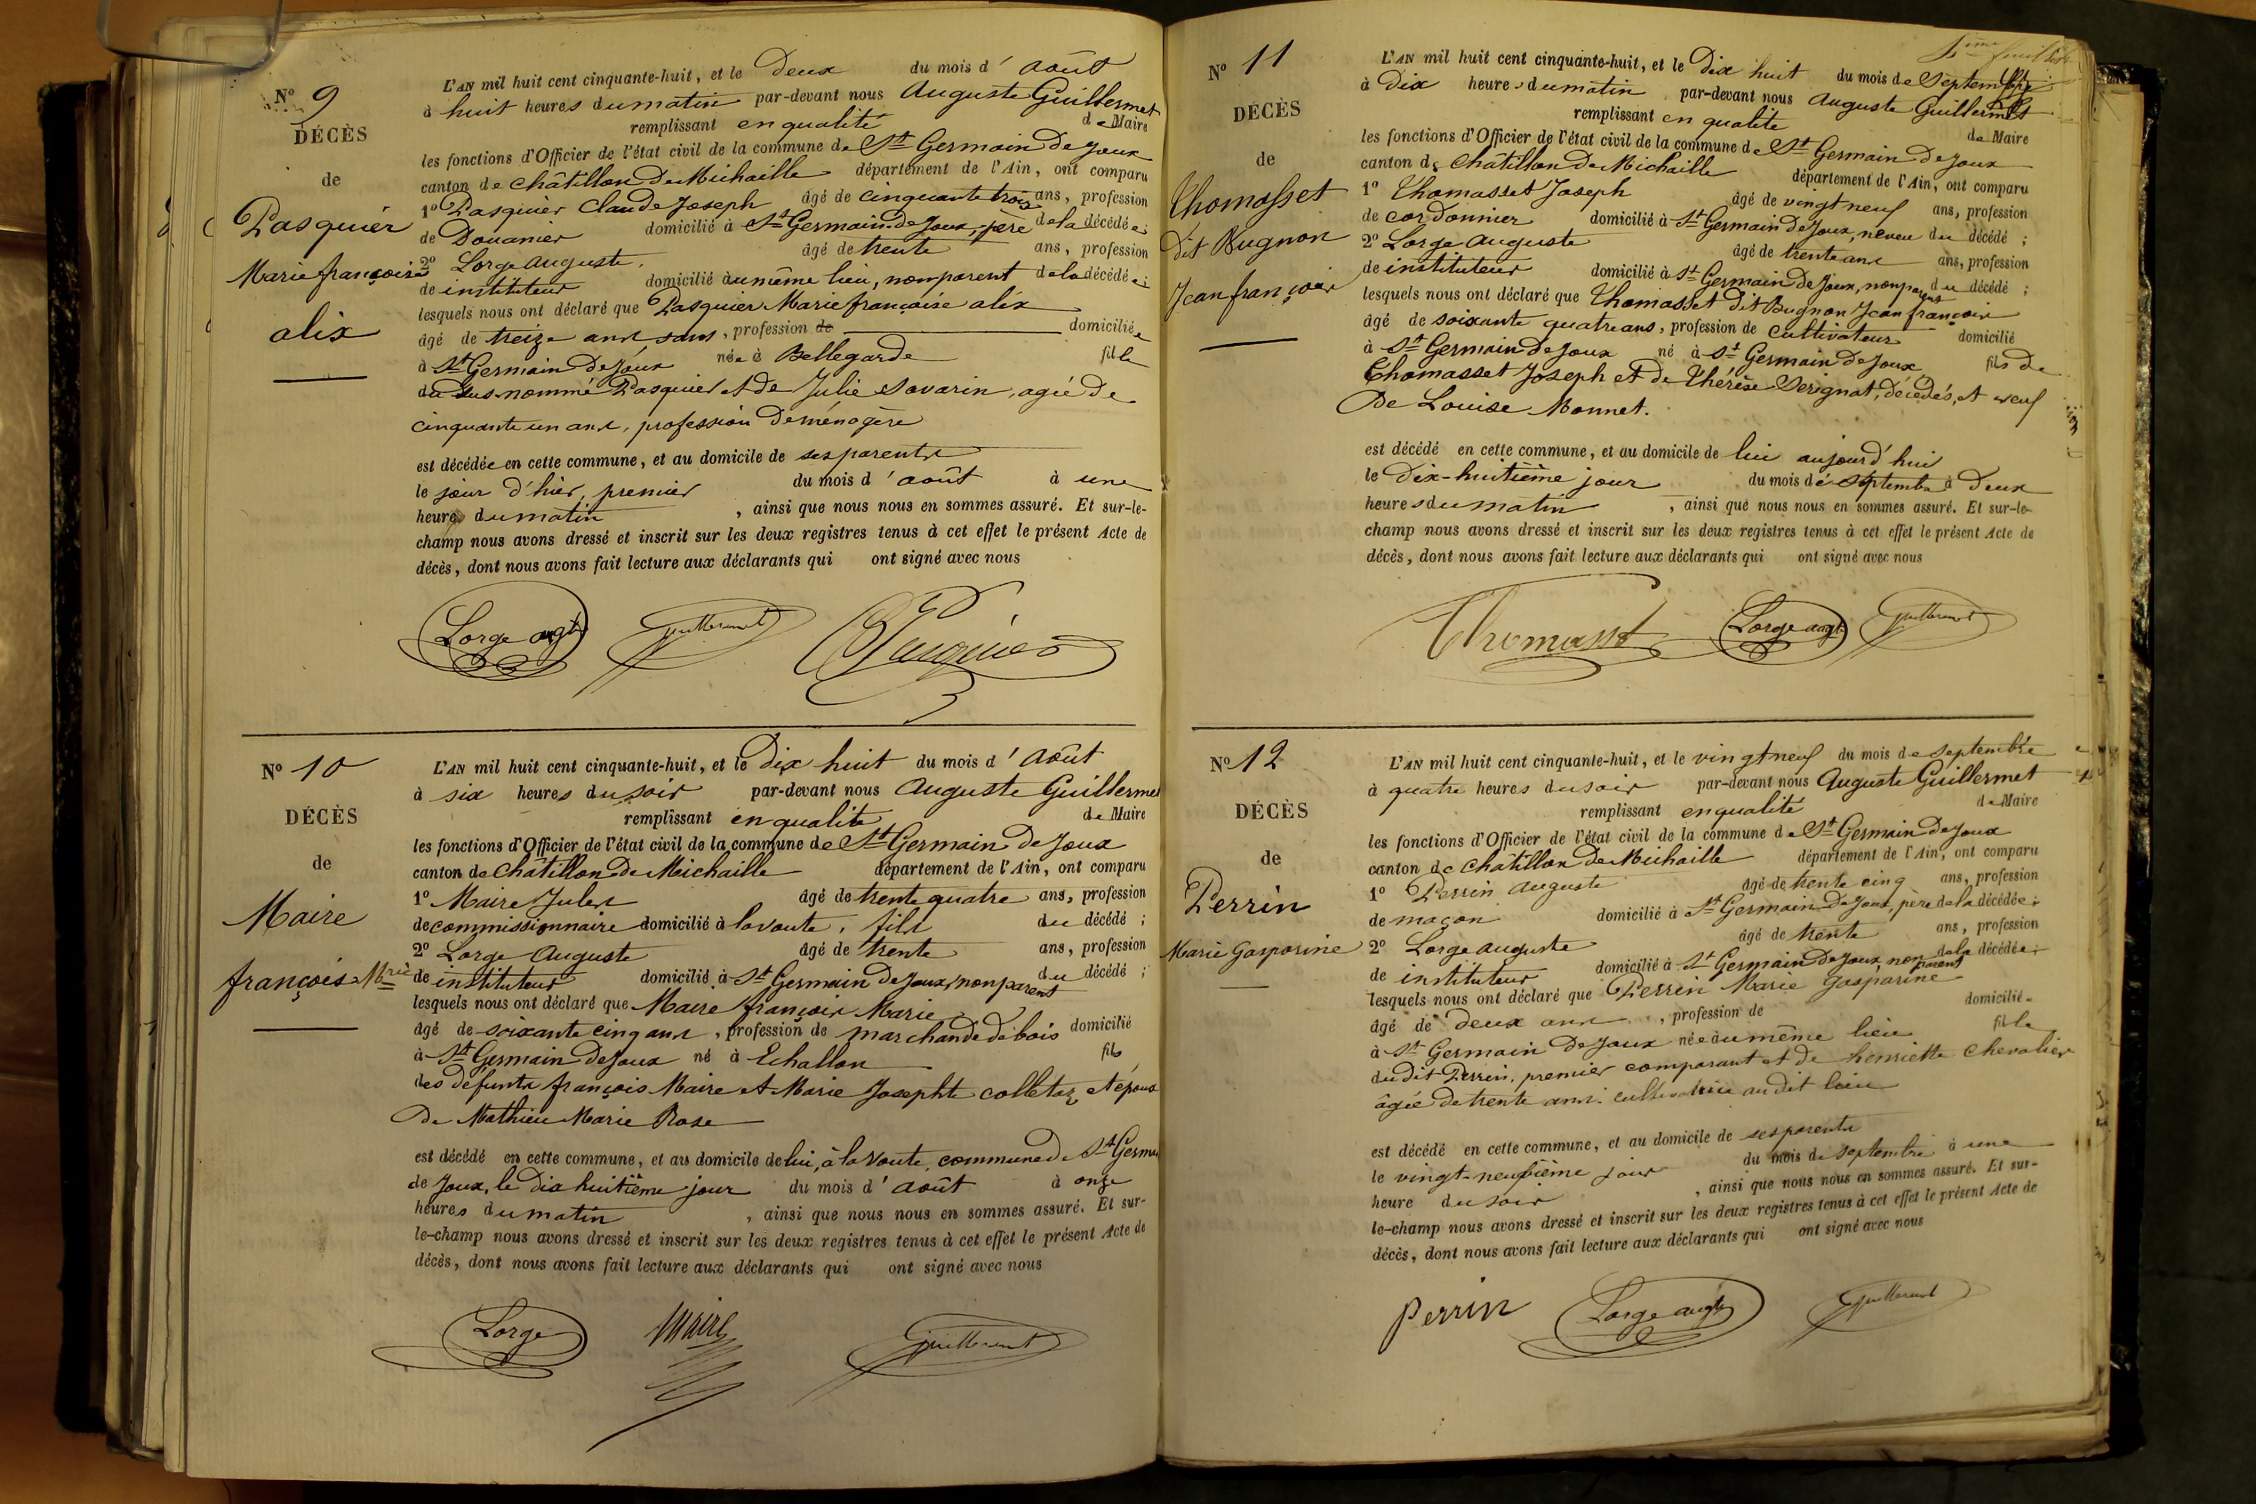 N° 9
DÉCÈS
de
Pasquier
Marie françoise
alix
L'AN mil huit cent cinquante-huit, et le Deux du mois d' août
à huit heures du matin par-devant nous Auguste Guillermet
remplissant en qualité de Maire
les fonctions d'Officier de l'état civil de la commune de St Germain de Joux
canton de Châtillon de Michaille département de l'Ain, ont comparu
1° Pasquier Claude Joseph âgé de cinquante trois ans, profession
de Douanier domicilié à St Germain de Joux, père de la décédée;
2° Lorge Auguste, âgé de trente ans, profession
de instituteur domicilié au même lieu, non parent de la décédée;
lesquels nous ont déclaré que Pasquier Marie françoise alix
âgé de treize ans sans, profession de domiciliée
à St Germain de Joux née à Bellegarde fille
du sus nommé Pasquier et de Julie Savarin, agée de
cinquante un ans, profession de ménagère
est décédée en cette commune, et au domicile de ses parents
le jour d'hier, premier du mois d' août à une
heure du matin, ainsi que nous nous en sommes assuré. Et sur-le-
champ nous avons dressé et inscrit sur les deux registres tenus à cet effet le présent Acte de
décès, dont nous avons fait lecture aux déclarants qui ont signé avec nous
Lorge augte Guillermet Pasquier
N° 10
DÉCÈS
de
Maire
françois Mrie
L'AN mil huit cent cinquante-huit, et le Dix huit du mois d' Août
à six heures du soir par-devant nous Auguste Guillermet
remplissant en qualité de Maire
les fonctions d'Officier de l'état civil de la commune de St Germain de Joux
canton de Châtillon de Michaille département de l'Ain, ont comparu
1° Maire Jules âgé de trente quatre ans, profession
de commissionnaire domicilié à la voute, fils du décédé;
2° Lorge Auguste âgé de trente ans, profession
de instituteur domicilié à St Germain de Joux, non parent du décédé;
lesquels nous ont déclaré que Maire françois Marie
âgé de soixante cinq ans, profession de marchand de bois domicilié
à St Germain de Joux né à Echallon fils
des défunts françois Maire et Marie Josephte colletaz et époux
De Mathieu Marie Rose
est décédé en cette commune, et au domicile de lui, à la Voute, commune de St Germain
de Joux, le dix huitième jour du mois d' août à onze
heures du matin, ainsi que nous nous en sommes assuré. Et sur-
le-champ nous avons dressé et inscrit sur les deux registres tenus à cet effet le présent Acte de
décès, dont nous avons fait lecture aux déclarants qui ont signé avec nous
Lorge Maire Guillermet
N° 11
DÉCÈS
de
Thomasset
dit Bugnon
Jean françois
L'AN mil huit cent cinquante-huit, et le Dix huit du mois de Septembre
à Dix heures du matin par-devant nous Auguste Guillermet
remplissant en qualité de Maire
les fonctions d'Officier de l'état civil de la commune de St Germain de Joux
canton de Châtillon de Michaille département de l'Ain, ont comparu
1° Thomasset Joseph âgé de vingt neuf ans, profession
de cordonnier domicilié à St Germain de Joux, neveu du décédé;
2° Lorge Auguste âgé de trente ans ans, profession
de instituteur domicilié à St Germain de Joux, non parent du décédé;
lesquels nous ont déclaré que Thomasset dit Bugnon Jean françois
âgé de soixante quatre ans, profession de cultivateur domicilié
à St Germain de Joux né à St Germain de Joux fils de
Thomasset Joseph et de Thérèse Serignat, décédés, et veuf
De Louise Monnet.
est décédé en cette commune, et au domicile de lui aujourd'hui
le Dix-huitième jour du mois de septembre à Deux
heures du matin, ainsi que nous nous en sommes assuré. Et sur-le-
champ nous avons dressé et inscrit sur les deux registres tenus à cet effet le présent Acte de
décès, dont nous avons fait lecture aux déclarants qui ont signé avec nous
Thomasset Lorge augte Guillermet
N° 12
DÉCÈS
de
Perrin
Marie Gasparine
L'AN mil huit cent cinquante-huit, et le vingt neuf du mois de septembre
à quatre heures du soir par-devant nous Auguste Guillermet
remplissant en qualité de Maire
les fonctions d'Officier de l'état civil de la commune de St Germain de Joux
canton de Châtillon de Michaille département de l'Ain, ont comparu
1° Perrin Auguste âgé de trente cinq ans, profession
de maçon domicilié à St Germain de Joux, père de la décédée;
2° Lorge Auguste âgé de trente ans, profession
de instituteur domicilié à St Germain de Joux, non parent de la décédée;
lesquels nous ont déclaré que Perrin Marie Gasparine
âgé de deux ans, profession de domiciliée
à St Germain de Joux née au même lieu fille
du dit Perrin, premier comparant et de henriette Chevalier
âgée de trente ans, cultivatrice au dit lieu
est décédé en cette commune, et au domicile de ses parents
le vingt-neuvième jour du mois de septembre à une
heure du soir, ainsi que nous nous en sommes assuré. Et sur-
le-champ nous avons dressé et inscrit sur les deux registres tenus à cet effet le présent Acte de
décès, dont nous avons fait lecture aux déclarants qui ont signé avec nous
Perrin Lorge augte Guillermet